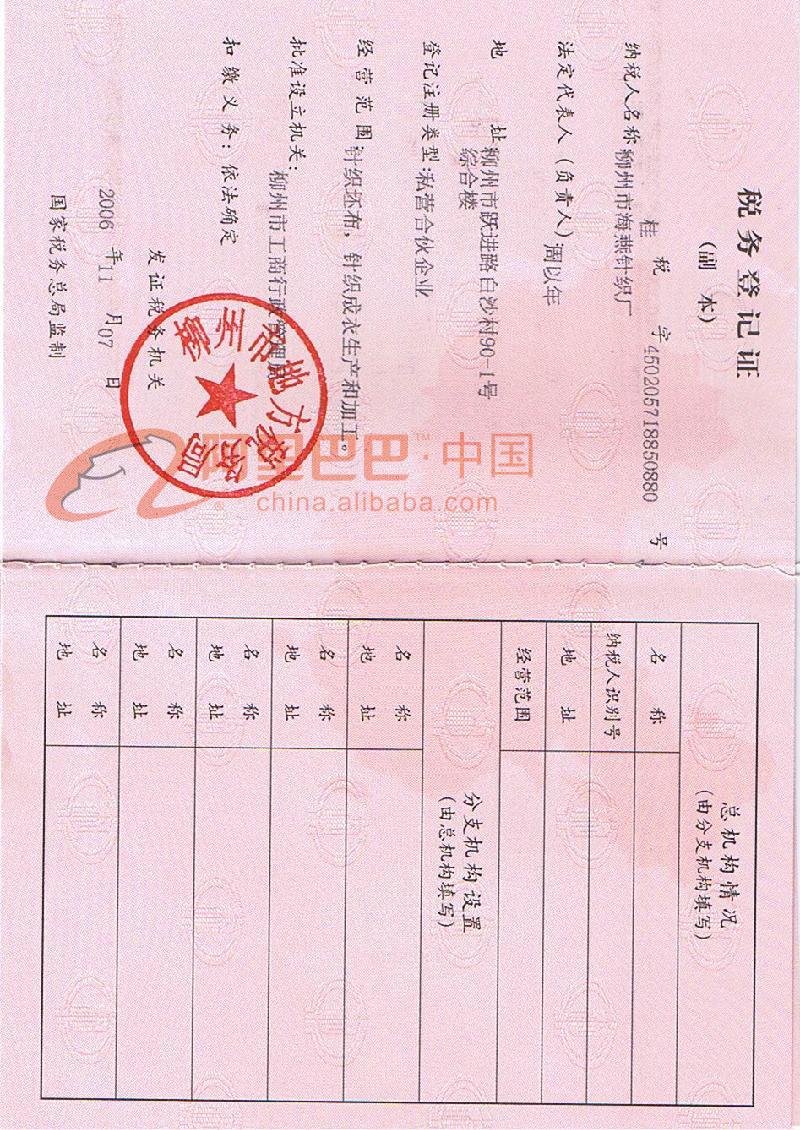 税务登记证
(副 本)
桂 税 字 450205718850880 号
纳税人名称 柳州市海燕针织厂
法定代表人(负责人)周以年
地 址 柳州市跃进路白沙村90-1号
综合楼
登记注册类型:私营合伙企业
经营范围:针织坯布,针织成衣生产和加工。
批准设立机关: 柳州市工商行政管理局
扣缴义务: 依法确定
发证税务机关
2006 年 11 月 07 日
国家税务总局监制
州市地方税务局
阿里巴巴™·中国
china.alibaba.com
总机构情况
(由分支机构填写)
名 称
纳税人识别号
地 址
经营范围
分支机构设置
(由总机构填写)
名 称
地 址
名 称
地 址
名 称
地 址
名 称
地 址
名 称
地 址